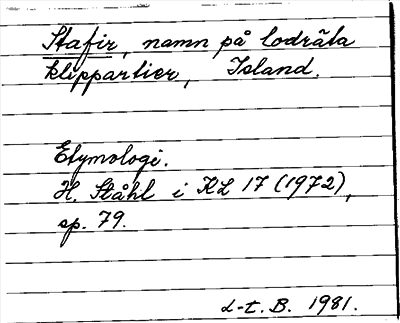 Stafir, namn på lodräta
klippartier, Island.
Etymologi.
H. Ståhl i KL 17 (1972),
sp. 79.
L-t. B. 1981.